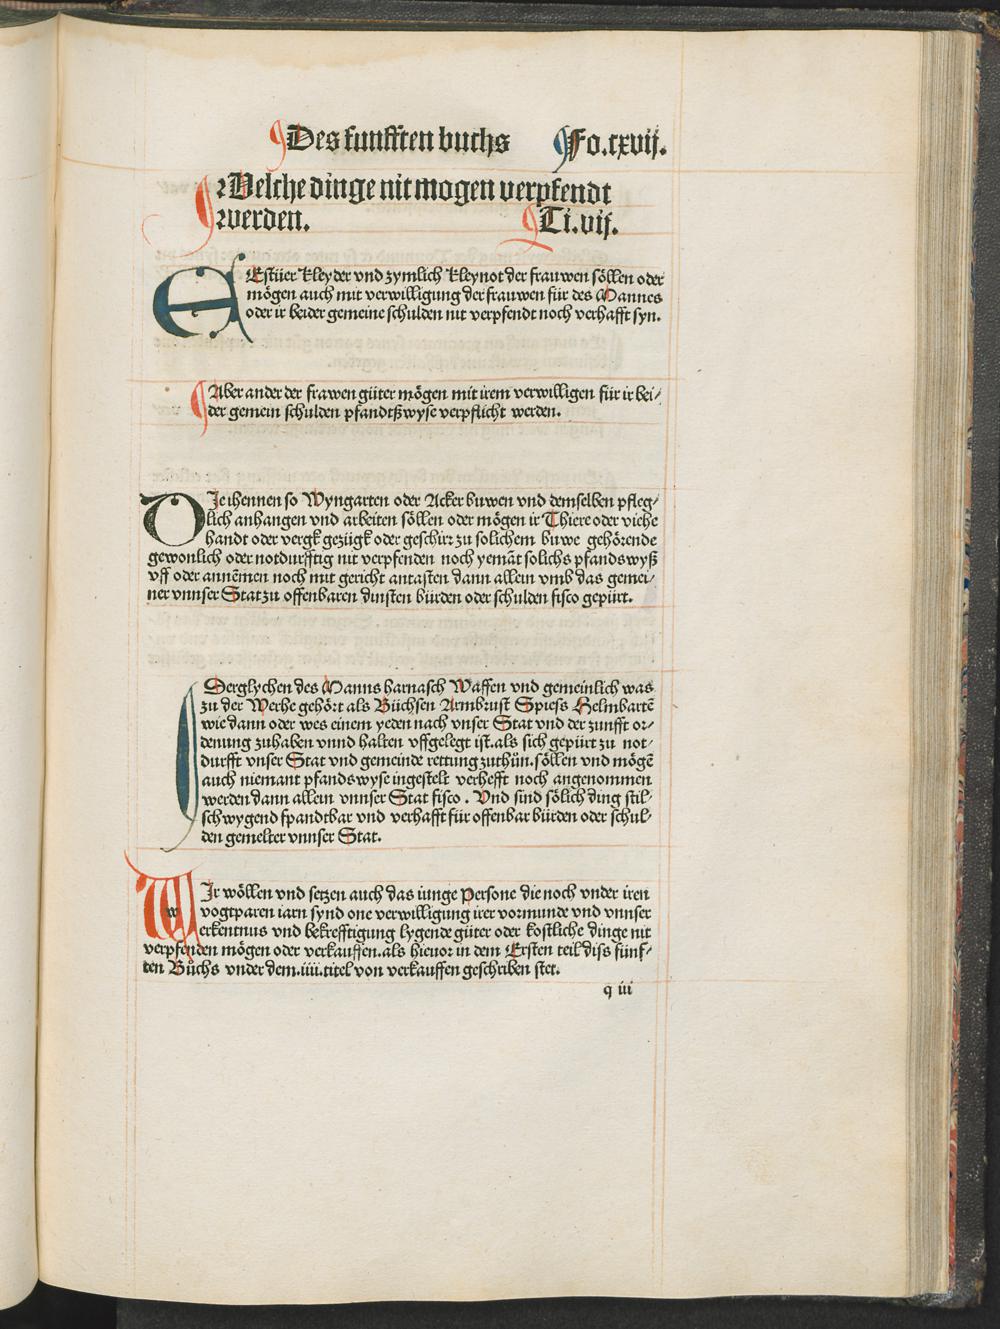 Des funfften buchs Fo.cxvij.
Welche dinge nit mogen verpfendt
werden. Ti.vij.
EEstüer kleyder vnd zymlich kleynot der frauwen söllen oder
mögen auch mit verwilligung der frauwen für des Mannes
oder ir beider gemeine schulden nit verpfendt noch verhafft syn.
Aber ander der frawen güter mögen mit irem verwilligen für ir bei⸗
der gemein schulden pfandtßwyse verpflicht werden.
DIe ihennen so Wyngarten oder Acker buwen vnd demselben pfleg⸗
lich anhangen vnd arbeiten söllen oder mögen ir Thiere oder viehe
handt oder vergk gezügk oder geschirr zu solichem buwe gehörende
gewonlich oder notdurfftig nit verpfenden noch yemāt solichs pfandswyß
vff oder annēmen noch mit gericht antasten dann allein vmb das gemei⸗
ner vnnser Stat zu offenbaren dinsten bürden oder schulden fisco gepürt.
Derglychen des Manns harnasch Waffen vnd gemeinlich was
zu der Werhe gehört als Büchsen Armbrust Spiess Helmbartē
wie dann oder wes einem yeden nach vnser Stat vnd der zunfft or⸗
denung zuhaben vnnd halten vffgelegt ist.als sich gepürt zu not⸗
durfft vnser Stat vnd gemeinde rettung zuthůn.söllen vnd mögē
auch niemant pfandswyse ingestelt verhefft noch angenommen
werden dann allein vnnser Stat fisco. Vnd sind sölich ding stil⸗
schwygend fpandtbar vnd verhafft für offenbar bürden oder schul⸗
den gemelter vnnser Stat.
WIr wöllen vnd setzen auch das iunge Persone die noch vnder iren
vogtparen iarn synd one verwilligung irer vormunde vnd vnnser
erkentnus vnd bekrefftigung lygende güter oder kostliche dinge nit
verpfenden mögen oder verkauffen.als hieuor in dem Ersten teil diss fünf⸗
ten Bůchs vnder dem.iiii.titel von verkauffen geschriben stet.
q iii